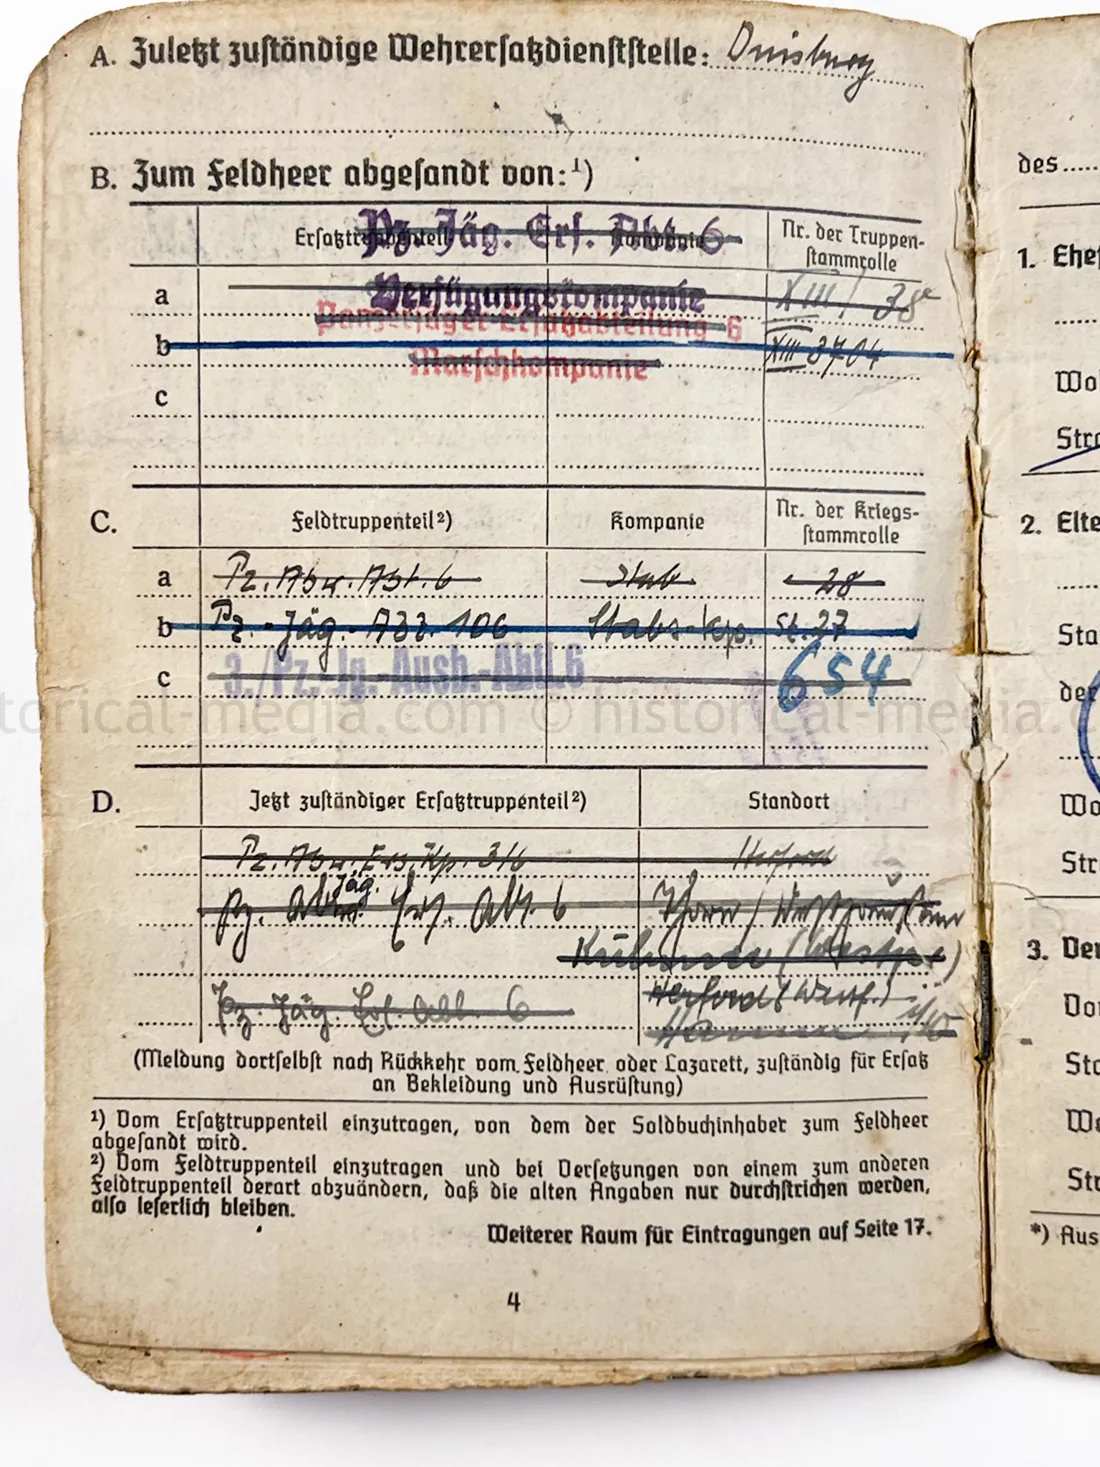 A. Zuletzt zuständige Wehrersatzdienststelle: Duisburg
B. Zum Feldheer abgesandt von: ¹)
Pz. Jäg. Ers. Abt. 6
Ersatztruppenteil Kompanie Nr. der Truppen-
stammrolle
a Verfügungskompanie XIII/ 38
Panzerjäger-Ersatzabteilung 6
b XIII 3704
Marschkompanie
c
C. Feldtruppenteil²) Kompanie Nr. der Kriegs-
stammrolle
a Pz. Abw. Abt. 6 Stab 28
b Pz.-Jäg.-Abt. 106 Stabs-Kp. St. 37
c 3./Pz.-Jg.-Ausb.-Abtl.6 654
D. Jetzt zuständiger Ersatztruppenteil²) Standort
Pz. Abw. Ers. Kp. 3/6 Herford
Jäg.
Pz. Abw. Ers. Abt. 6 Thorn/
Herford (Westf.)
Pz. Jäg. Ers. Abt. 6
(Meldung dortselbst nach Rückkehr vom Feldheer oder Lazarett, zuständig für Ersatz
an Bekleidung und Ausrüstung)
¹) Vom Ersatztruppenteil einzutragen, von dem der Soldbuchinhaber zum Feldheer
abgesandt wird.
²) Vom Feldtruppenteil einzutragen und bei Versetzungen von einem zum anderen
Feldtruppenteil derart abzuändern, daß die alten Angaben nur durchstrichen werden,
also leserlich bleiben.
Weiterer Raum für Eintragungen auf Seite 17.
4
des
1. Ehe
Wo
Str
2. Elte
Sta
der
Wo
Str
3. Der
Vor
Sta
Wo
Str
*) Aus
torical-media.com © historical-media.c